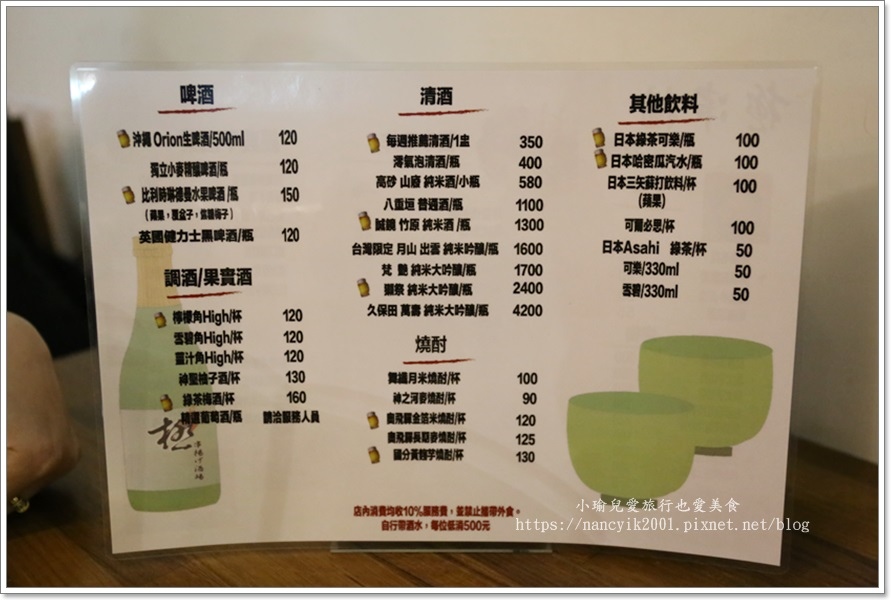 啤酒
沖繩 Orion生啤酒/500ml 120
獨立小麥精釀啤酒/瓶 120
比利時琳德曼水果啤酒/瓶 150
(蘋果，覆盆子，紫醋梅子)
英國健力士黑啤酒/瓶 120
調酒/果實酒
檸檬角High/杯 120
雪碧角High/杯 120
薑汁角High/杯 120
神聖柚子酒/杯 130
綠茶梅酒/杯 160
精選葡萄酒/瓶 請洽服務人員
清酒
每週推薦清酒/1盅 350
澪氣泡清酒/瓶 400
高砂 山廢 純米酒/小瓶 580
八重垣 普通酒/瓶 1100
誠鏡 竹原 純米酒 /瓶 1300
台灣限定 月山 出雲 純米吟釀/瓶 1600
梵 艷 純米大吟釀/瓶 1700
獺祭 純米大吟釀/瓶 2400
久保田 萬壽 純米大吟釀/瓶 4200
燒酎
舞纖月米燒酎/杯 100
神之河麥燒酎/杯 90
奧飛驒金箔米燒酎/杯 120
奧飛驒長期麥燒酎/杯 125
國分黃麴芋燒酎/杯 130
其他飲料
日本綠茶可樂/瓶 100
日本哈密瓜汽水/瓶 100
日本三矢蘇打飲料/杯 100
(蘋果)
可爾必思/杯 100
日本Asahi 綠茶/杯 50
可樂/330ml 50
雪碧/330ml 50
極
串揚げ酒場
店內消費均收10%服務費，並禁止攜帶外食。
自行帶酒水，每位低消500元
小瑜兒愛旅行也愛美食
https://nancyik2001.pixnet.net/blog